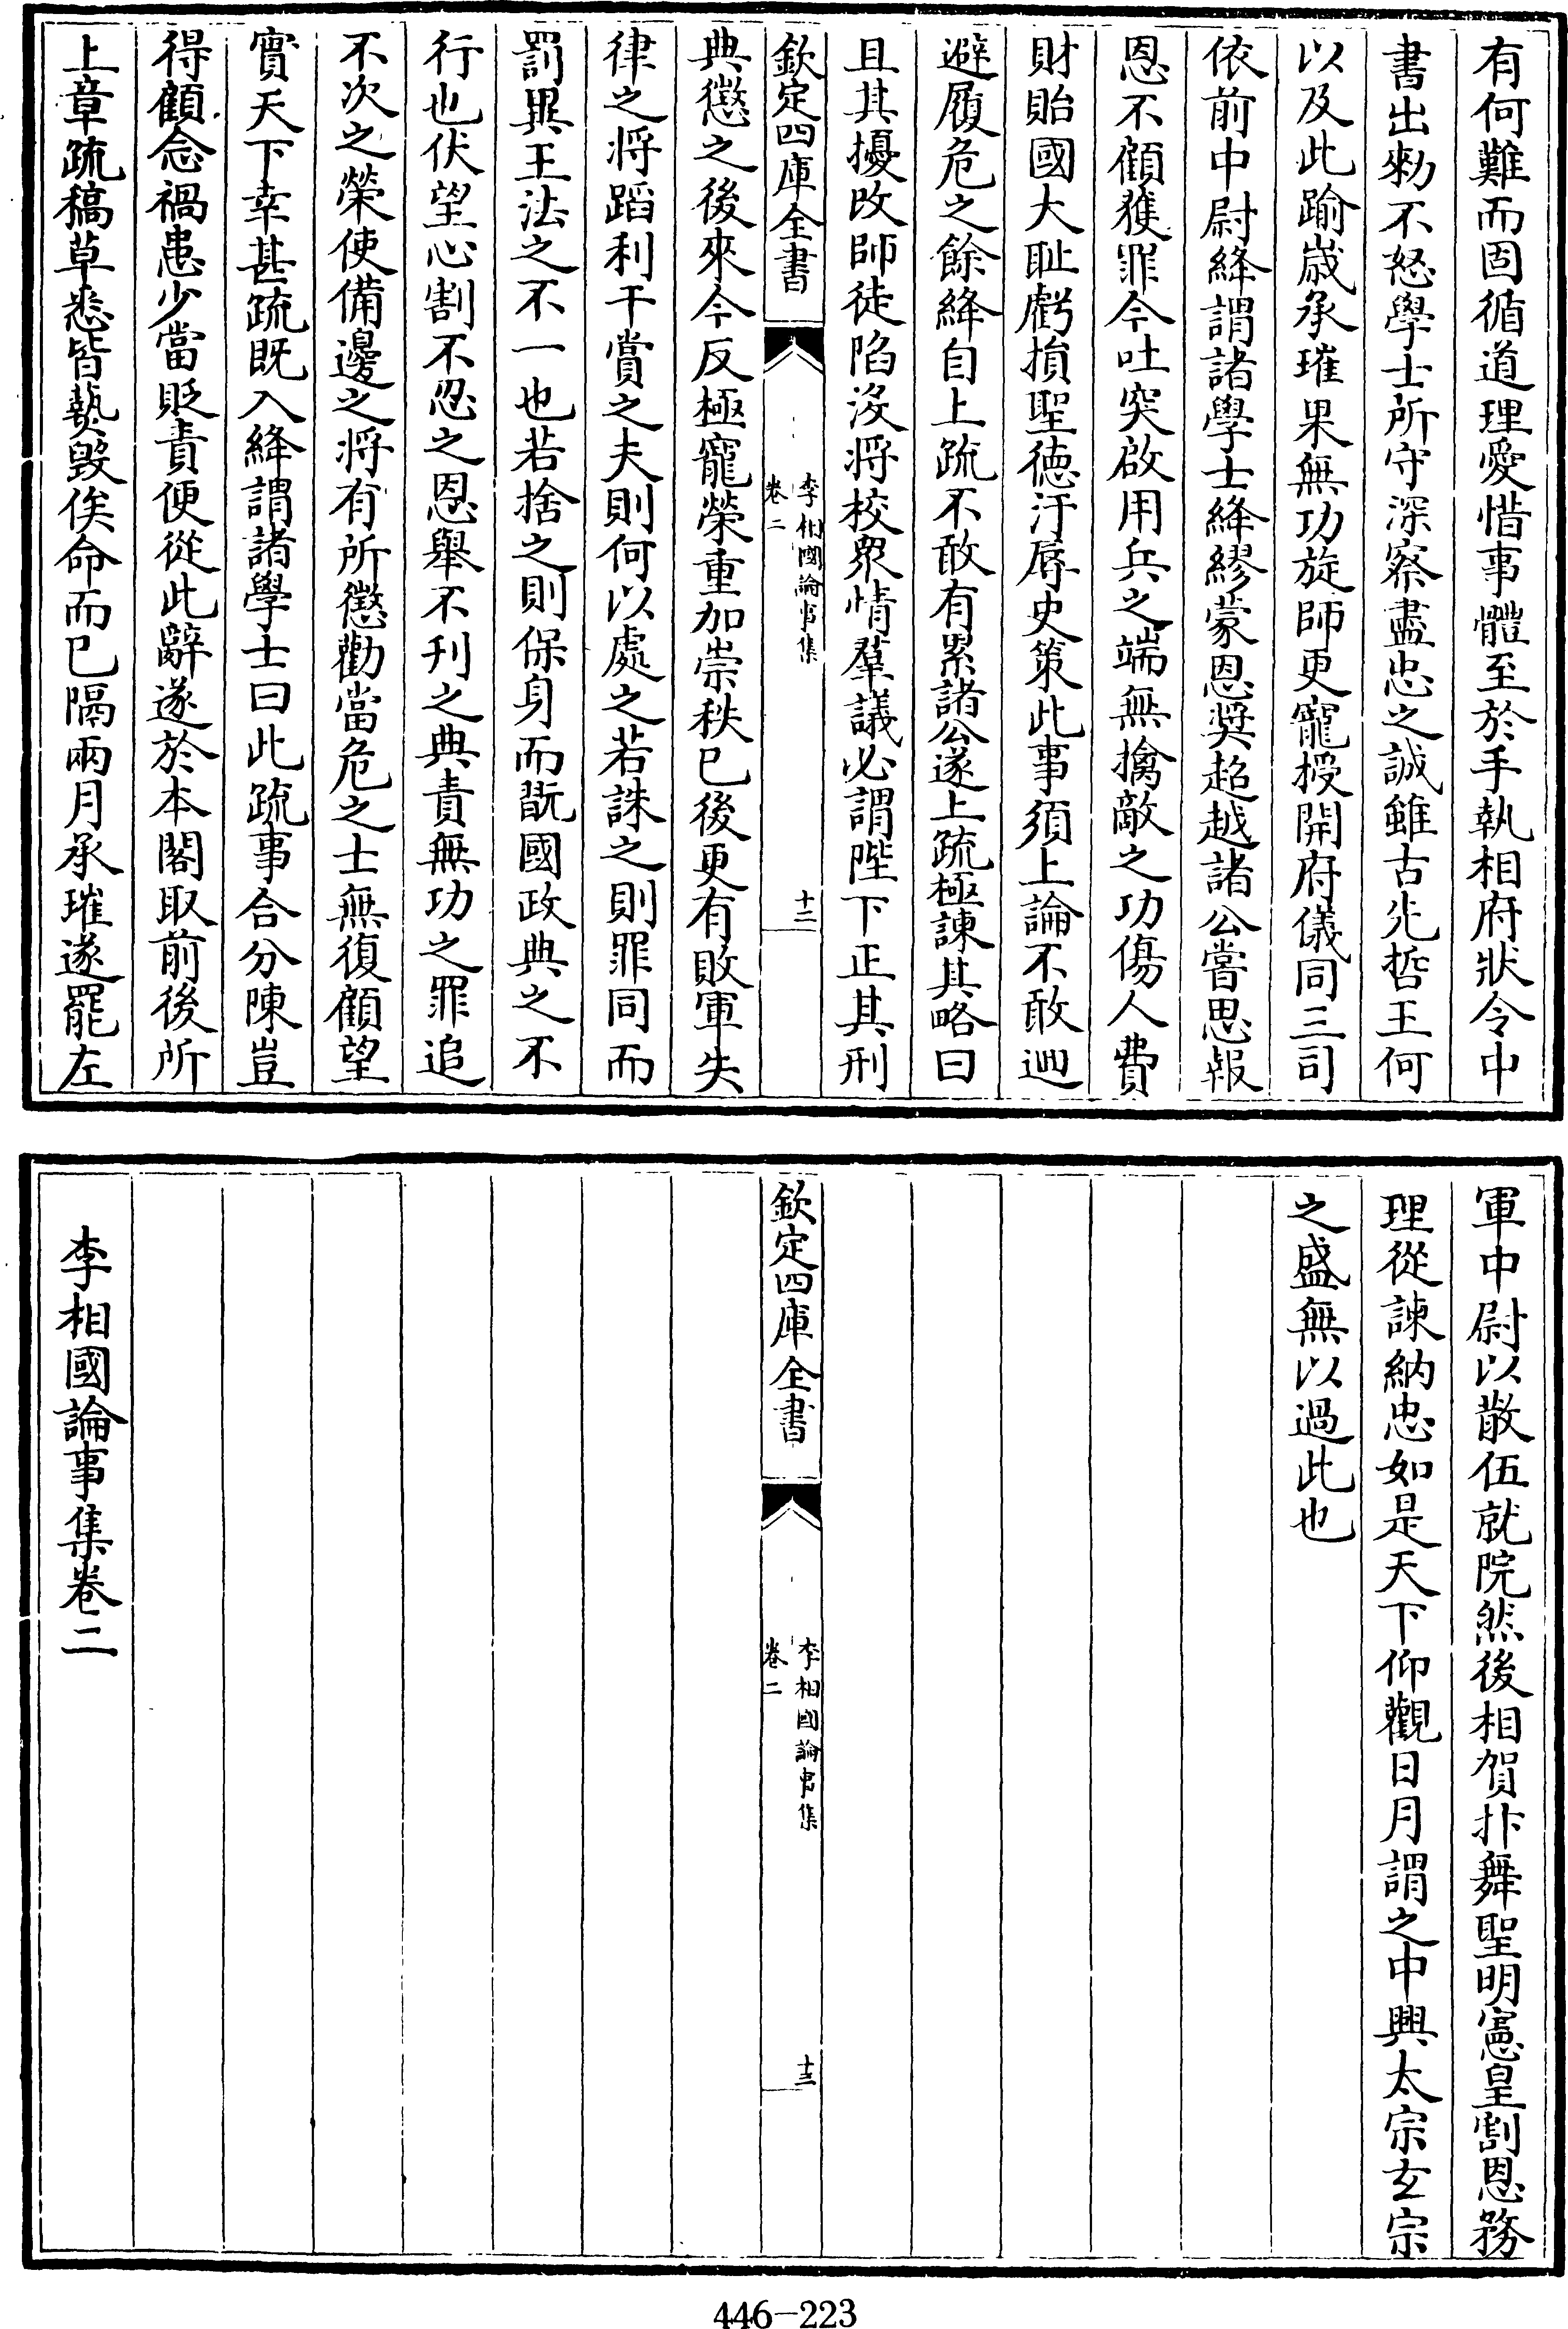 有何難而固循道理愛惜事體至於手執相府狀令中
書出勑不怒學士所守深察盡忠之誠雖古先哲王何
以及此踰嵗承璀果無功旋師更寵授開府儀同三司
依前中尉絳謂諸學士絳繆蒙恩奬超越諸公嘗思報
恩不顧獲罪今吐突啟用兵之端無擒敵之功傷人費
財貽國大耻虧損聖徳汙辱史策此事須上論不敢𢌞
避履危之餘絳自上疏不敢有累諸公遂上疏極諫其略曰
且其擾敗師徒陷沒將校衆情羣議必謂陛下正其刑
欽定四庫全書
李相國論事集
卷二
十二
典懲之後來今反極寵榮重加崇秩已後更有敗軍失
律之將蹈利干賞之夫則何以處之若誅之則罪同而
罰異王法之不一也若捨之則保身而翫國政典之不
行也伏望心割不忍之恩舉不刋之典責無功之罪追
不次之榮使備邊之將有所懲勸當危之士無復顧望
實天下幸甚疏既入絳謂諸學士曰此疏事合分陳豈
得顧念禍患少當貶責便從此辭遂於本閣取前後所
上章疏稿草悉皆爇毀俟命而已隔兩月承璀遂罷左
軍中尉以散伍就院然後相賀抃舞聖明憲皇割恩務
理從諫納忠如是天下仰觀日月謂之中興太宗玄宗
之盛無以過此也
欽定四庫全書
李相國論事集
卷二
十三
李相國論事集卷二
446-223